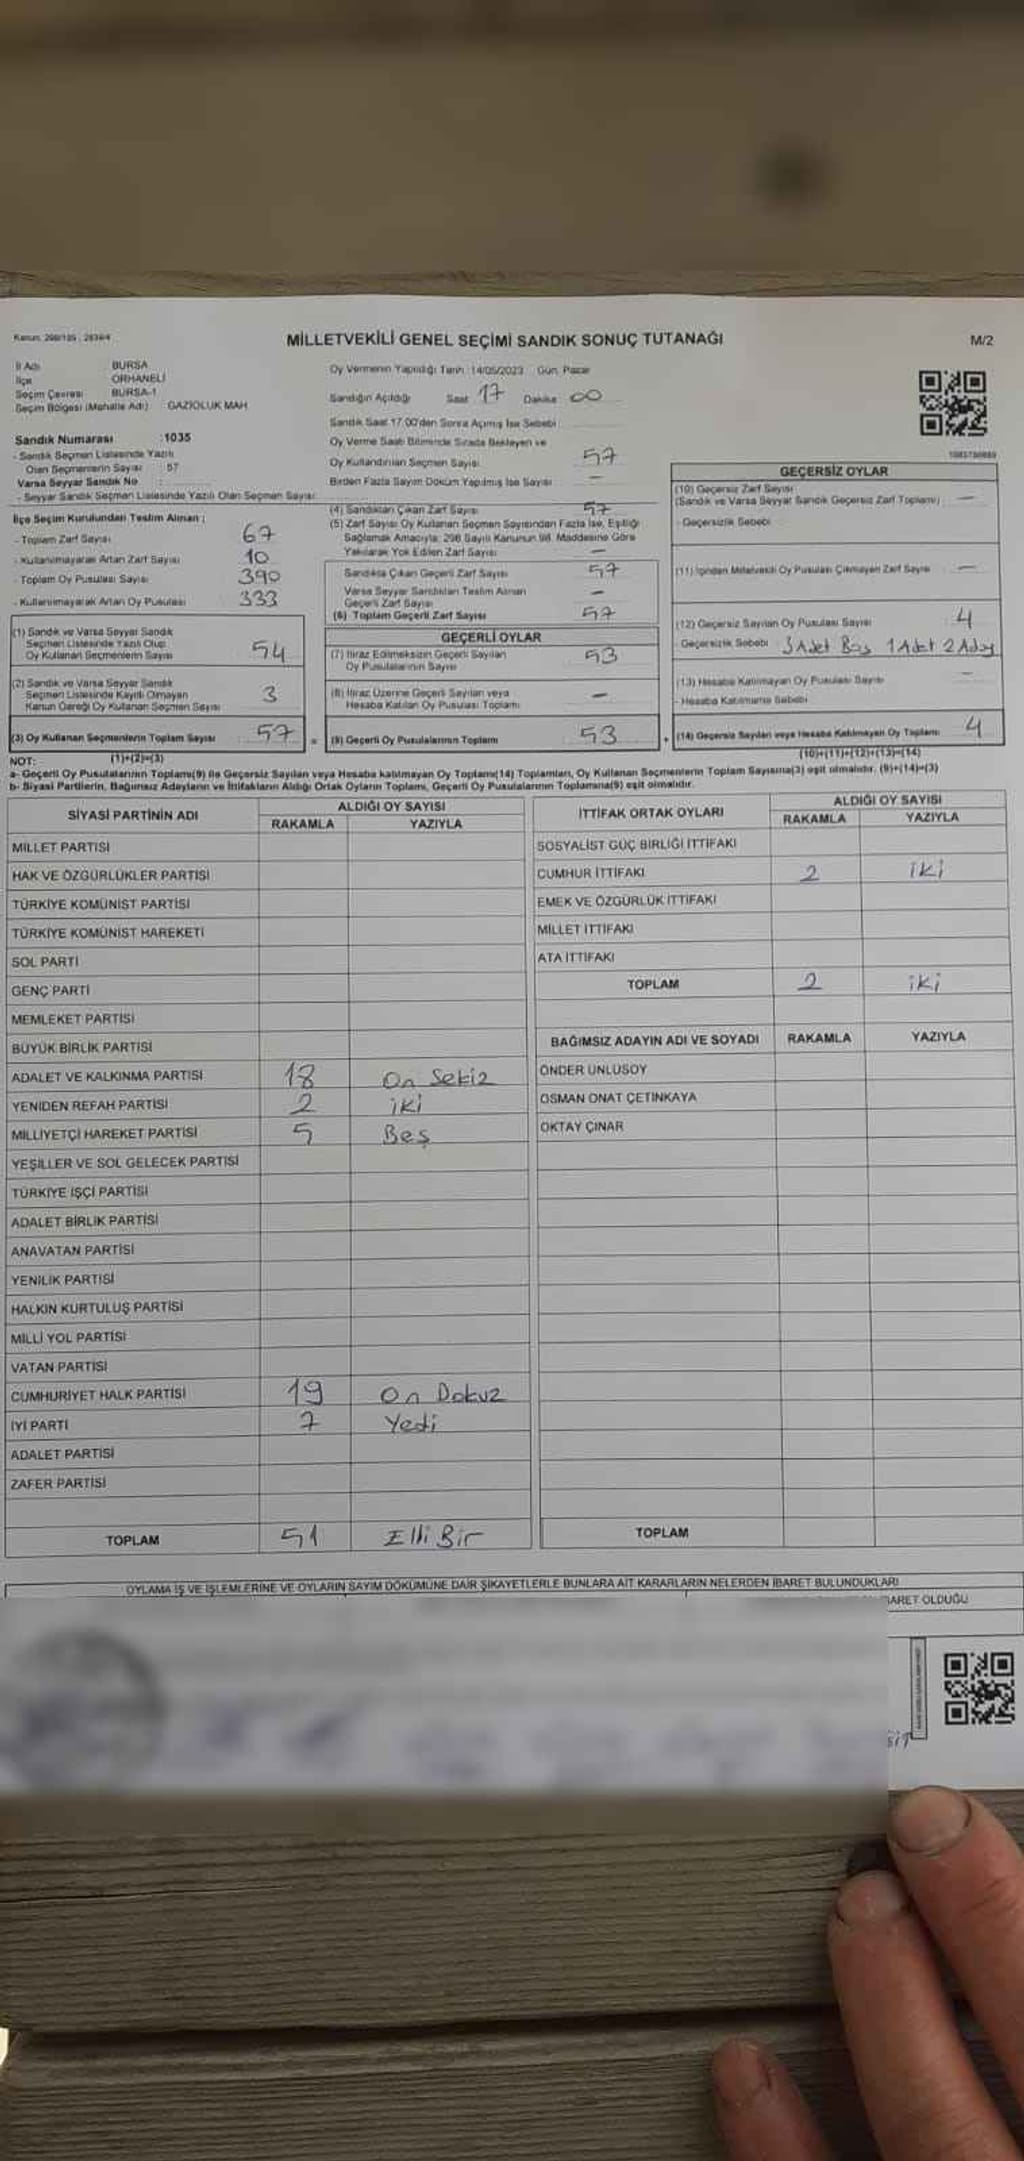 MİLLETVEKİLİ GENEL SEÇİMİ SANDIK SONUÇ TUTANAĞI
M/2
İl Adı BURSA
İlçe ORHANELİ
Seçim Çevresi BURSA-1
Seçim Bölgesi (Mahalle Adı) GAZİOLUK MAH
Sandık Numarası :1035
- Sandık Seçmen Listesinde Yazılı
Olan Seçmenlerin Sayısı 57
Varsa Seyyar Sandık No
- Seyyar Sandık Seçmen Listesinde Yazılı Olan Seçmen Sayısı:
Oy Vermenin Yapıldığı Tarih :14/05/2023 Gün: Pazar
Sandığın Açıldığı Saat 17 Dakika 00
Sandık Saat 17.00'den Sonra Açılmış İse Sebebi
Oy Verme Saati Bitiminde Sırada Bekleyen ve
Oy Kullandırılan Seçmen Sayısı 57
Birden Fazla Sayım Döküm Yapılmış İse Sayısı —
İlçe Seçim Kurulundan Teslim Alınan ;
- Toplam Zarf Sayısı 67
- Kullanılmayarak Artan Zarf Sayısı 10
- Toplam Oy Pusulası Sayısı 390
- Kullanılmayarak Artan Oy Pusulası 333
(1) Sandık ve Varsa Seyyar Sandık
Seçmen Listesinde Yazılı Olup
Oy Kullanan Seçmenlerin Sayısı 54
(2) Sandık ve Varsa Seyyar Sandık
Seçmen Listesinde Kayıtlı Olmayan
Kanun Gereği Oy Kullanan Seçmen Sayısı 3
(3) Oy Kullanan Seçmenlerin Toplam Sayısı 57
(1)+(2)=(3)
(4) Sandıktan Çıkan Zarf Sayısı 57
(5) Zarf Sayısı Oy Kullanan Seçmen Sayısından Fazla İse, Eşitliği
Sağlamak Amacıyla; 298 Sayılı Kanunun 98. Maddesine Göre
Yakılarak Yok Edilen Zarf Sayısı —
Sandıkta Çıkan Geçerli Zarf Sayısı 57
Varsa Seyyar Sandıktan Teslim Alınan
Geçerli Zarf Sayısı —
(6) Toplam Geçerli Zarf Sayısı 57
GEÇERLİ OYLAR
(7) İtiraz Edilmeksizin Geçerli Sayılan
Oy Pusulalarının Sayısı 53
(8) İtiraz Üzerine Geçerli Sayılan veya
Hesaba Katılan Oy Pusulası Toplamı —
(9) Geçerli Oy Pusulalarının Toplamı 53
GEÇERSİZ OYLAR
(10) Geçersiz Zarf Sayısı
(Sandık ve Varsa Seyyar Sandık Geçersiz Zarf Toplamı) —
- Geçersizlik Sebebi
(11) İçinden Milletvekili Oy Pusulası Çıkmayan Zarf Sayısı —
(12) Geçersiz Sayılan Oy Pusulası Sayısı 4
- Geçersizlik Sebebi 3 Adet Boş 1 Adet 2 Aday
(13) Hesaba Katılmayan Oy Pusulası Sayısı —
- Hesaba Katılmama Sebebi
(14) Geçersiz Sayılan veya Hesaba Katılmayan Oy Toplamı 4
(10)+(11)+(12)+(13)=(14)
NOT:
a- Geçerli Oy Pusulalarının Toplamı(9) ile Geçersiz Sayılan veya Hesaba katılmayan Oy Toplamı(14) Toplamları, Oy Kullanan Seçmenlerin Toplam Sayısına(3) eşit olmalıdır. (9)+(14)=(3)
b- Siyasi Partilerin, Bağımsız Adayların ve İttifakların Aldığı Ortak Oyların Toplamı, Geçerli Oy Pusulalarının Toplamına(9) eşit olmalıdır.
SİYASİ PARTİNİN ADI
ALDIĞI OY SAYISI
RAKAMLA YAZIYLA
MİLLET PARTİSİ
HAK VE ÖZGÜRLÜKLER PARTİSİ
TÜRKİYE KOMÜNİST PARTİSİ
TÜRKİYE KOMÜNİST HAREKETİ
SOL PARTİ
GENÇ PARTİ
MEMLEKET PARTİSİ
BÜYÜK BİRLİK PARTİSİ
ADALET VE KALKINMA PARTİSİ 18 On Sekiz
YENİDEN REFAH PARTİSİ 2 iki
MİLLİYETÇİ HAREKET PARTİSİ 5 Beş
YEŞİLLER VE SOL GELECEK PARTİSİ
TÜRKİYE İŞÇİ PARTİSİ
ADALET BİRLİK PARTİSİ
ANAVATAN PARTİSİ
YENİLİK PARTİSİ
HALKIN KURTULUŞ PARTİSİ
MİLLİ YOL PARTİSİ
VATAN PARTİSİ
CUMHURİYET HALK PARTİSİ 19 On Dokuz
İYİ PARTİ 7 Yedi
ADALET PARTİSİ
ZAFER PARTİSİ
TOPLAM 51 Elli Bir
İTTİFAK ORTAK OYLARI
ALDIĞI OY SAYISI
RAKAMLA YAZIYLA
SOSYALİST GÜÇ BİRLİĞİ İTTİFAKI
CUMHUR İTTİFAKI 2 iki
EMEK VE ÖZGÜRLÜK İTTİFAKI
MİLLET İTTİFAKI
ATA İTTİFAKI
TOPLAM 2 iki
BAĞIMSIZ ADAYIN ADI VE SOYADI RAKAMLA YAZIYLA
ÖNDER ÜNLÜSOY
OSMAN ONAT ÇETİNKAYA
OKTAY ÇINAR
TOPLAM
OYLAMA İŞ VE İŞLEMLERİNE VE OYLARIN SAYIM DÖKÜMÜNE DAİR ŞİKAYETLERLE BUNLARA AİT KARARLARIN NELERDEN İBARET BULUNDUKLARI
OLDUĞU